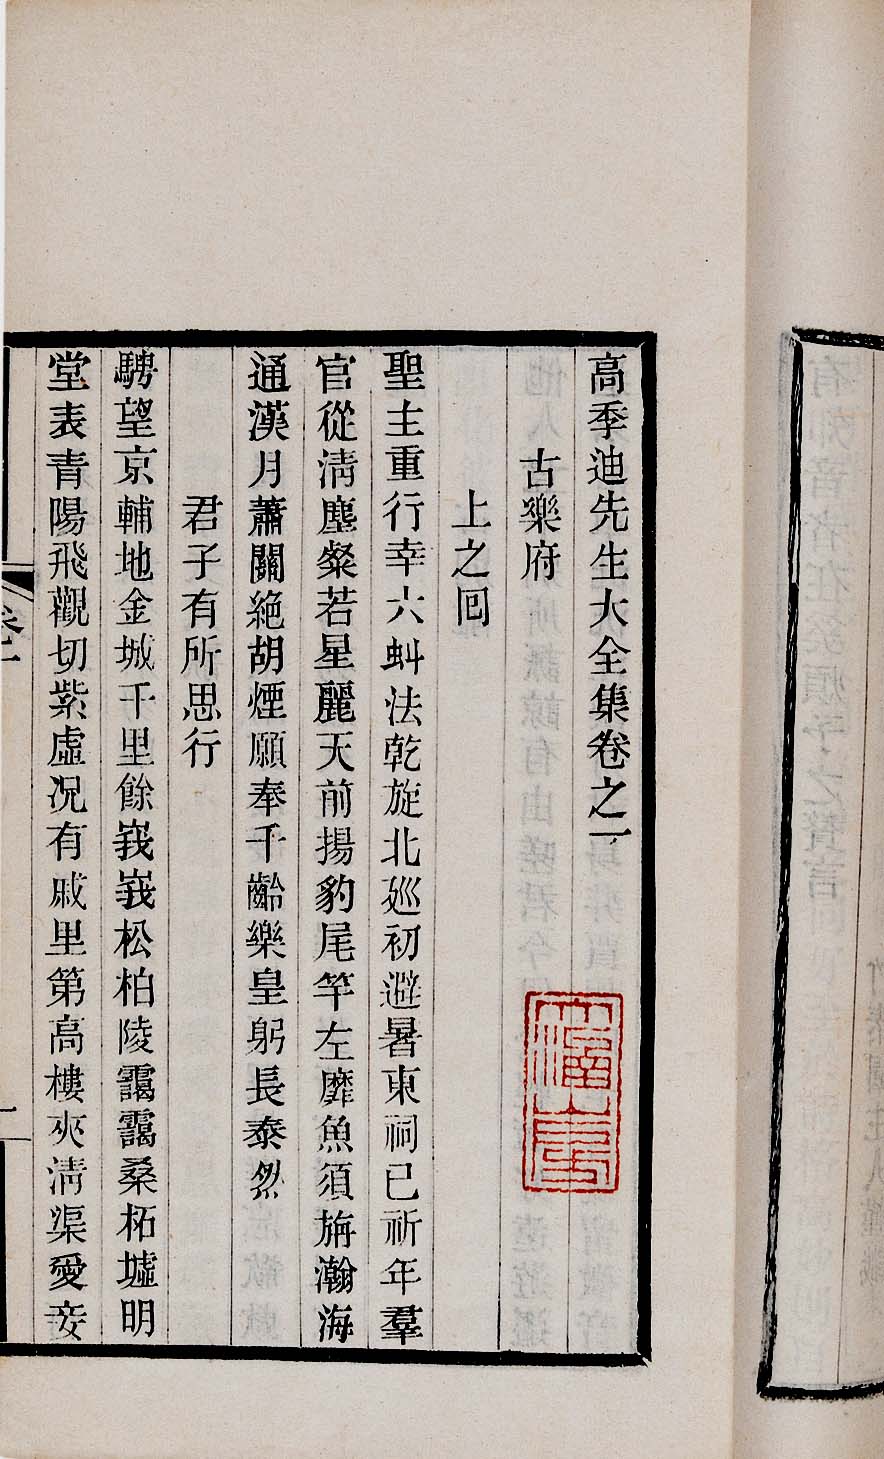 高季迪先生大全集卷之一
古樂府
上之回
聖主重行幸六虯法乾旋北廵初避暑東祠已祈年羣
官從淸塵粲若星麗天前揚豹尾竿左靡魚須旃瀚海
通漢月蕭關絶胡煙願奉千齡樂皇躬長泰然
君子有所思行
騁望京輔地金城千里餘峩峩松柏陵靄靄桑柘墟明
堂表青陽飛觀切紫虛况有戚里第高樓夾淸渠愛妾
卷一
一